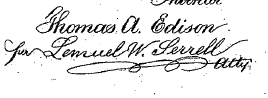 Thomas A. Edison
per Lemuel W. Serrell
Atty